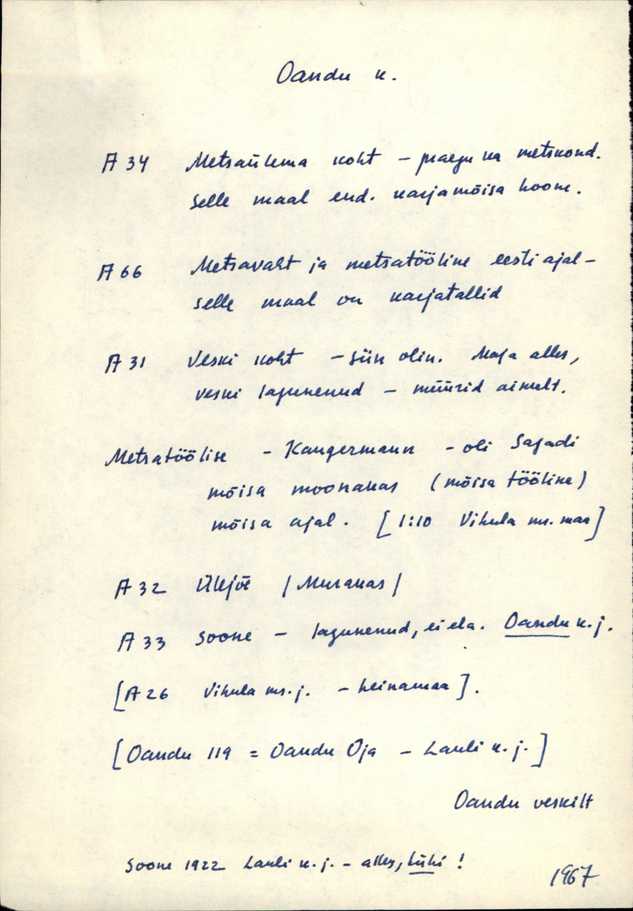 Oandu k.
A 34 Metsaülema koht – praegu ka metskond.
Selle maal end. karjamõisa hoone.
A 66 Metsavaht ja metsatööline eesti ajal –
selle maal on karjatallid
A 31 Veski koht – siin olin. Maja alles,
veski lagunenud – müürid ainult.
Metsatöölise – Kangermann – oli Sagadi
mõisa moonakas (mõisa tööline)
mõisa ajal. [1:10 Vihula ms. maa]
A 32 Ülejõe /Murakas/
A 33 Soone – lagunenud, ei ela. Oandu k. j.
[A 26 Vihula ms. j. – heinamaa].
[Oandu 119 = Oandu Oja – Lauli k. j.]
Oandu veskilt
Soone 1922 Lauli k. j. – alles, tühi!
1967